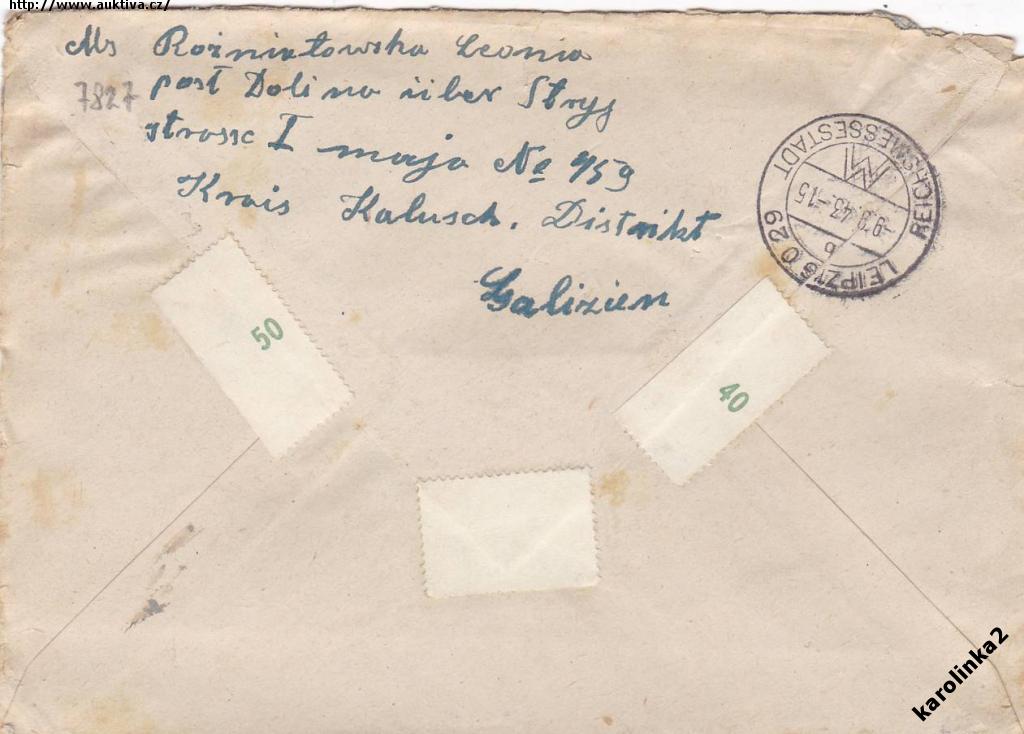 http://www.auktiva.cz/
Ms Rożniatowska Leonia
7827
post Dolina über Stryj
strasse I maja No 959
Krais Kalusch. Distrikt
Galizien
LEIPZIG O 29
REICHSMESSESTADT
-9.9.43.-15
b
50
40
karolinka2